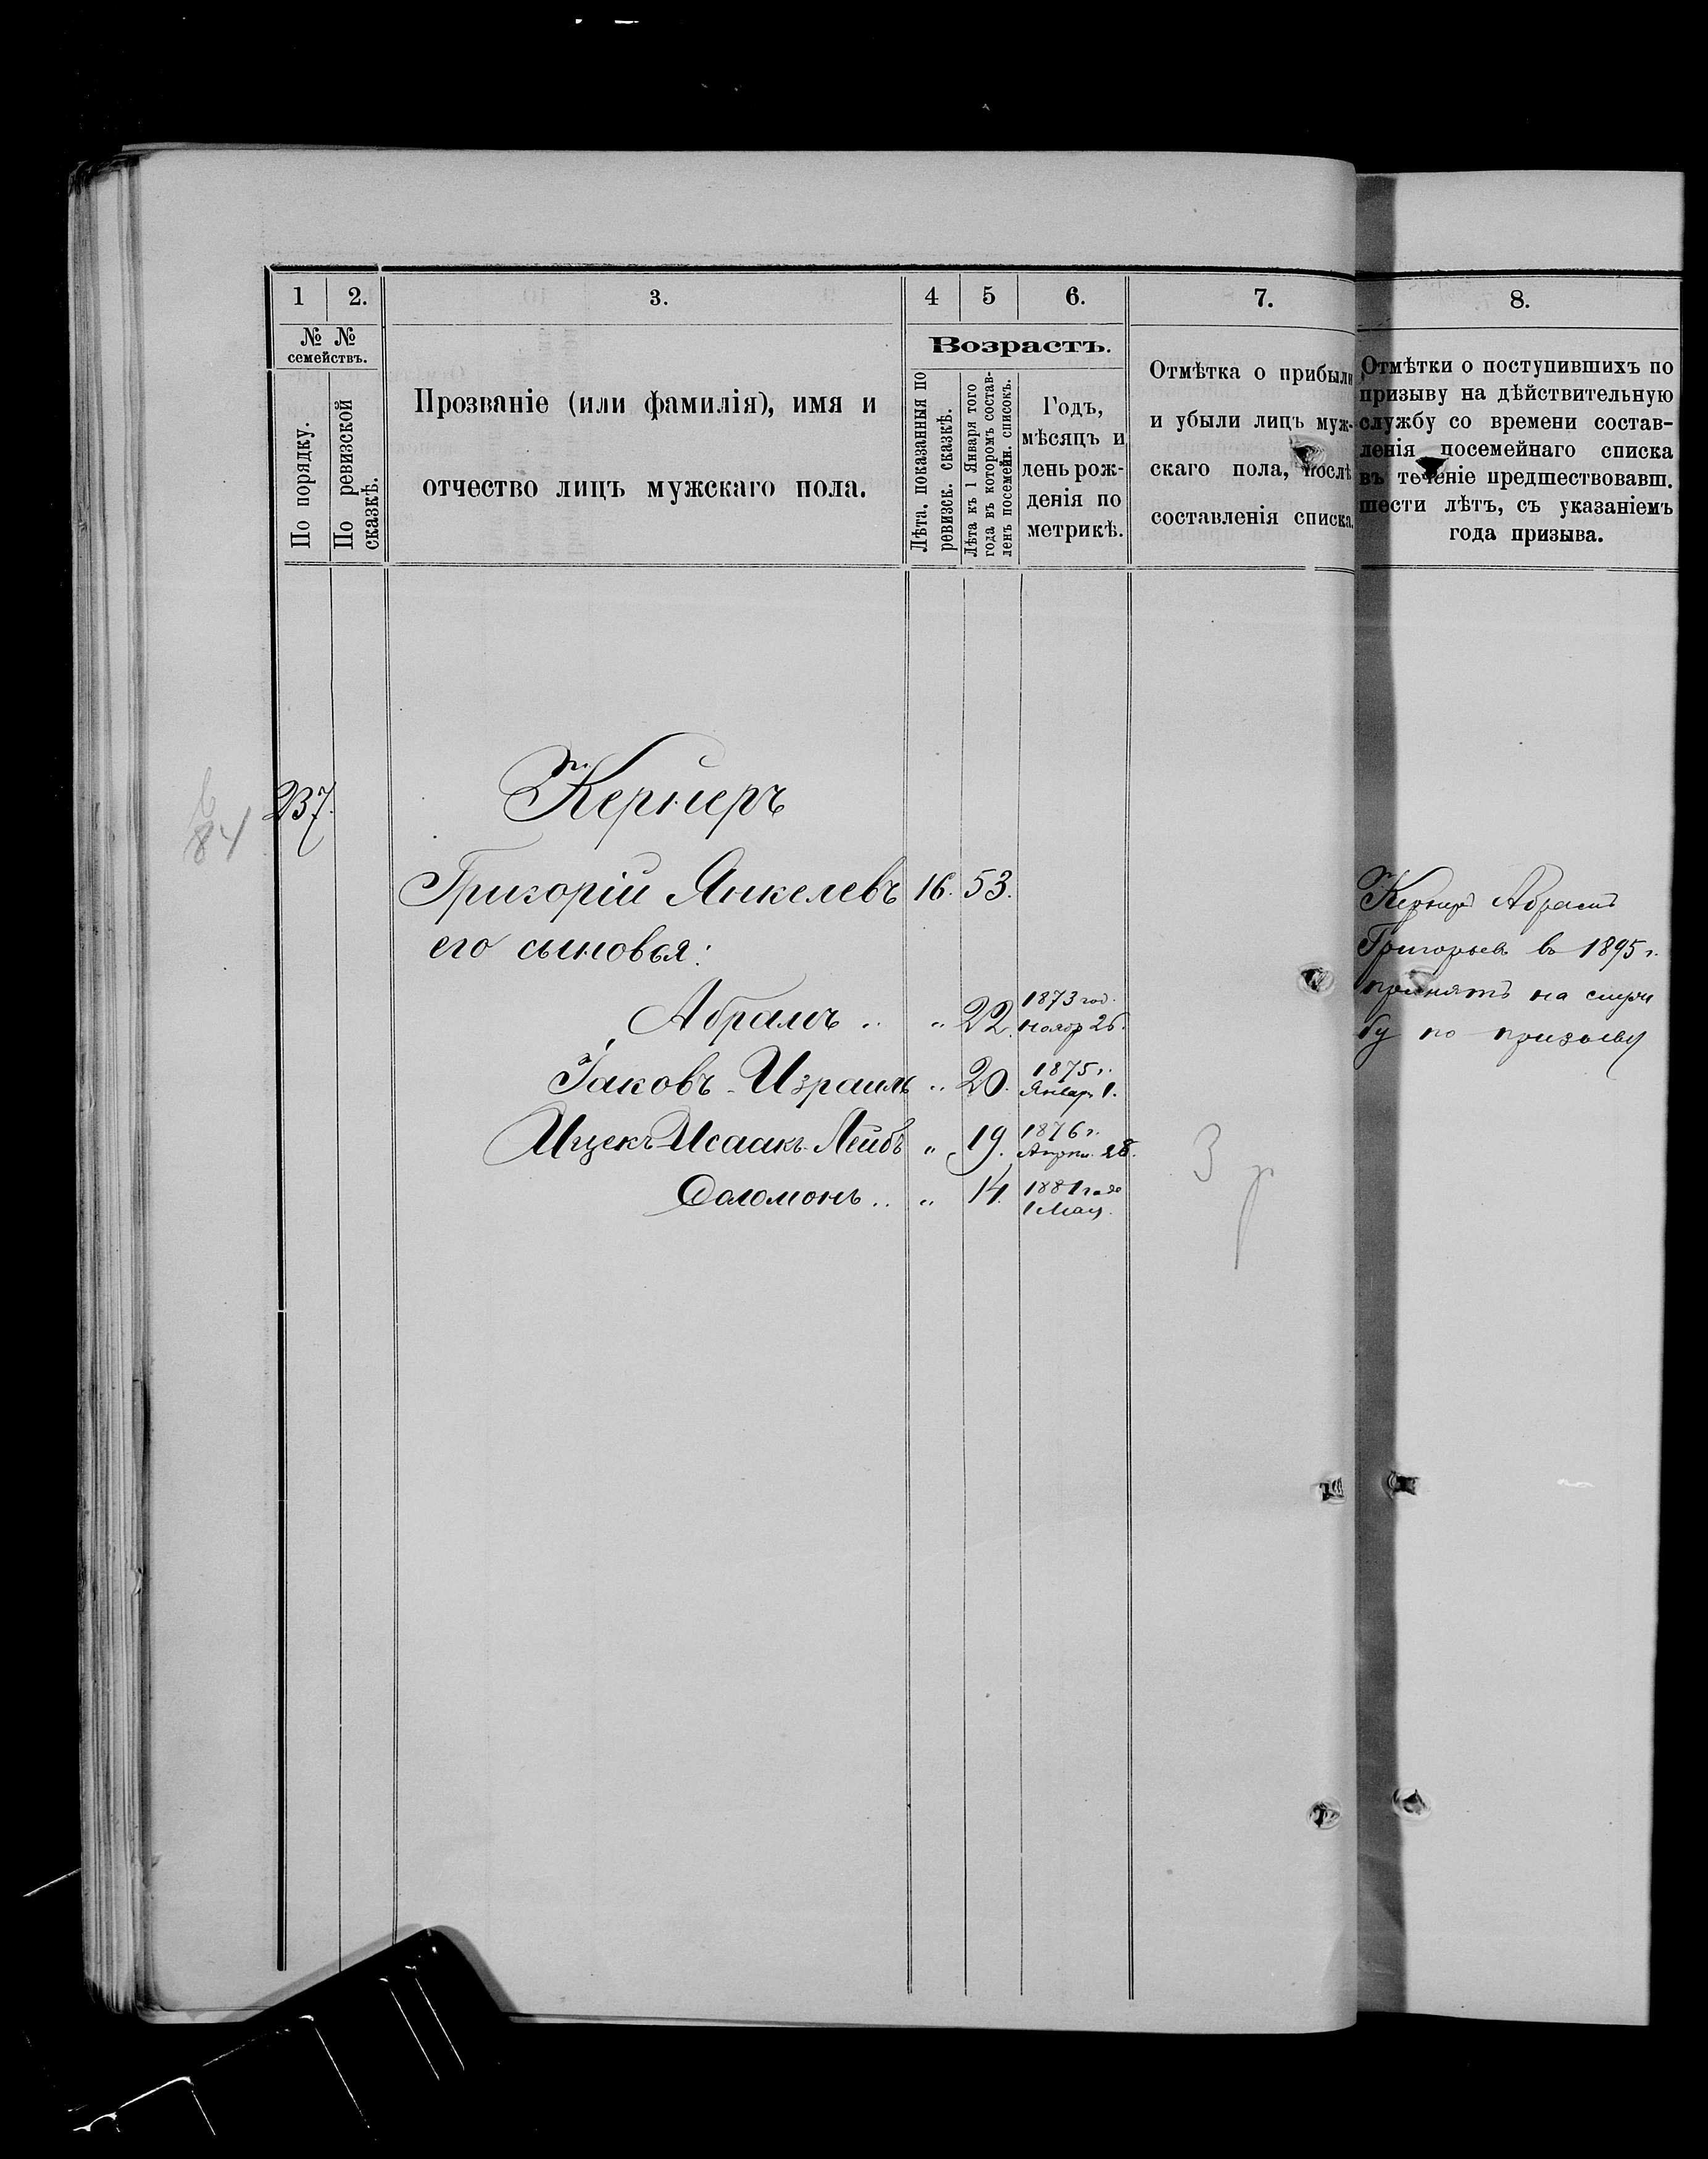 1 2. 3. 4 5 6. 7. 8.
№ №
семействъ.
По порядку.
По ревизской
сказкѣ.
Прозваніе (или фамилія), имя и
отчество лицъ мужскаго пола.
Возрастъ.
Лѣта, показанныя по
ревизск. сказкѣ.
Лѣта къ 1 Января того
года въ которомъ состав-
ленъ посемейн. списокъ.
Годъ,
мѣсяцъ и
день рож-
денія по
метрикѣ.
Отмѣтка о прибыли
и убыли лицъ муж-
скаго пола, послѣ
составленія списка.
Отмѣтки о поступившихъ по
призыву на дѣйствительную
службу со времени состав-
ленія посемейнаго списка
въ теченіе предшествовавш.
шести лѣтъ, съ указаніемъ
года призыва.
84
237. Кернеръ
Григорій Янкелевъ 16. 53.
его сыновья:
Абрамъ .. " 22. 1873 год.
ноябр 26.
Іаковъ-Израиль .. 20. 1875 г.
Январ 1.
Ицекъ Исаакъ-Лейбъ " 19. 1876 г.
Април. 28.
Соломонъ .. " 14. 1881 года
1 Мая.
3 р
Кернеръ Абрамъ
Григорьевъ въ 1895 г.
принятъ на служ
бу по призыву